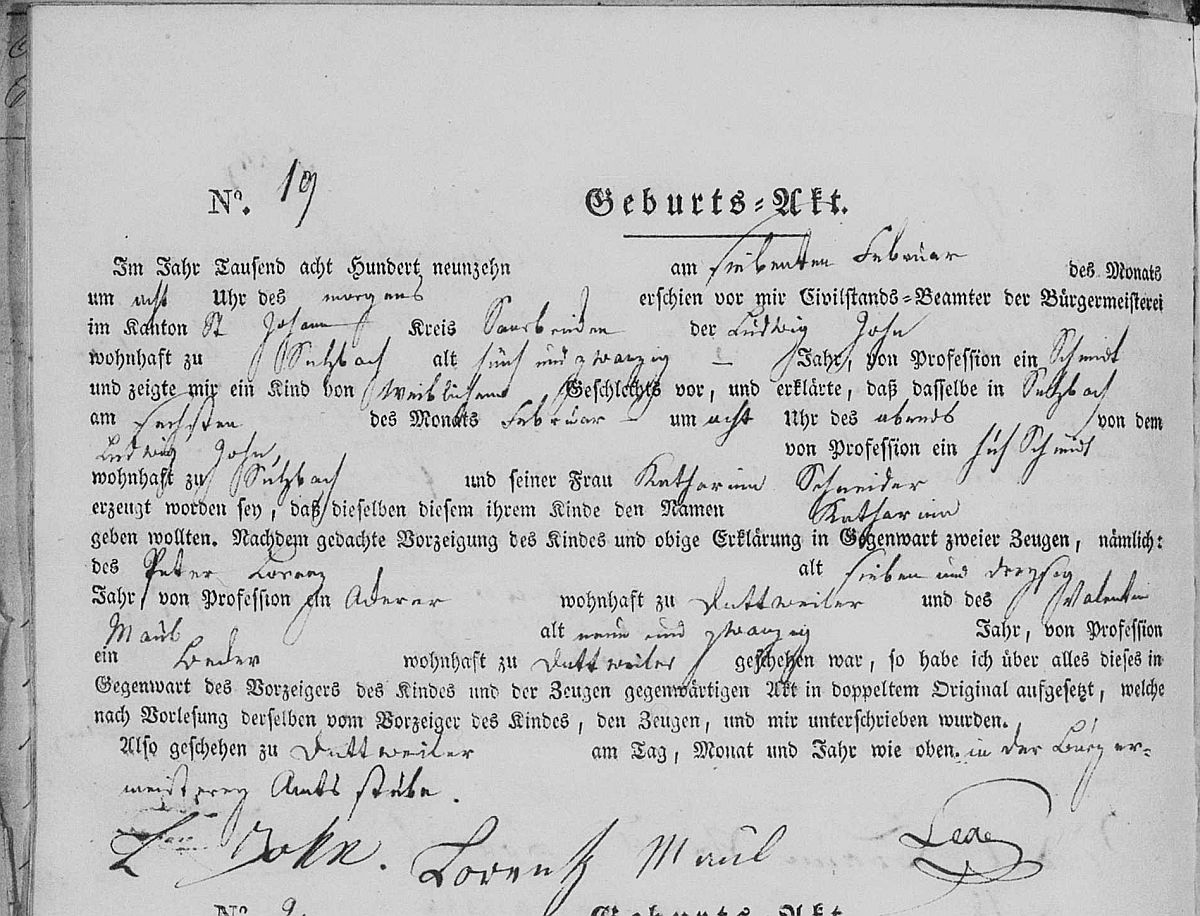 Nº. 19 Geburts-Akt.
Im Jahr Tausend acht Hundert neunzehn am siebenten Februar des Monats
um acht Uhr des morgens erschien vor mir Civilstands-Beamter der Bürgermeisterei
im Kanton St Johann Kreis Saarbrücken der Ludwig John
wohnhaft zu Sulzbach alt fünf und zwanzig – Jahr, von Profession ein Schmidt
und zeigte mir ein Kind von weiblichem Geschlechts vor, und erklärte, daß dasselbe in Sulzbach
am sechsten des Monats Februar – um acht Uhr des abends von dem
Ludwig John, von Profession ein Huf Schmidt
wohnhaft zu Sulzbach und seiner Frau Katharina Schneider
erzeugt worden sey, daß dieselben diesem ihrem Kinde den Namen Katharina
geben wollten. Nachdem gedachte Vorzeigung des Kindes und obige Erklärung in Gegenwart zweier Zeugen, nämlich:
des Peter Lorenz alt sieben und dreysig
Jahr, von Profession ein Ackerer wohnhaft zu Duttweiler und des Valentin
Maul alt neun und zwanzig Jahr, von Profession
ein wohnhaft zu Duttweiler geschehen war, so habe ich über alles dieses in
Gegenwart des Vorzeigers des Kindes und der Zeugen gegenwärtigen Akt in doppeltem Original aufgesetzt, welche
nach Vorlesung derselben vom Vorzeiger des Kindes, den Zeugen, und mir unterschrieben wurden.
Also geschehen zu Duttweiler am Tag, Monat und Jahr wie oben. in der Bürger-
meisterey Amts stube.
L John. Lorentz Maul
Nº. Geburts-Akt.